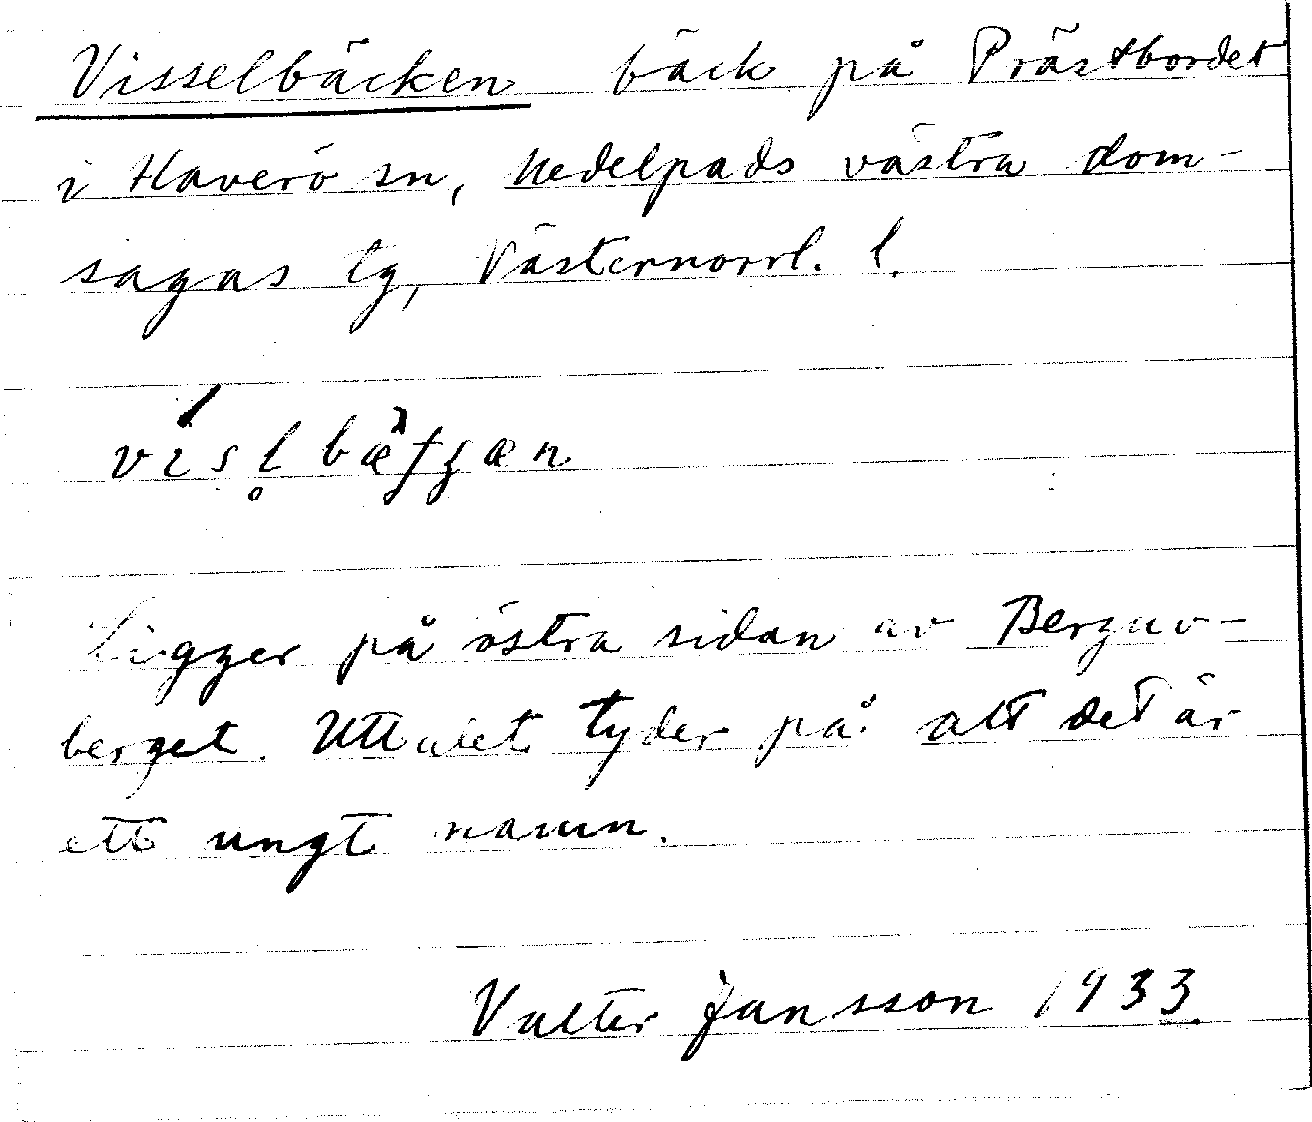 Visselbäcken bäck på Prästbordet
i Haverö sn, Medelpads västra dom-
sagas tg, Västernorrl. l.
Ligger på östra sidan av Berguv-
berget. Uttalet tyder på att det är
ett ungt namn.
Valter Jansson 1933.